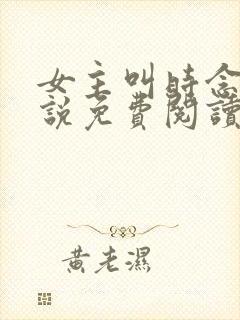 女主叫時念
説免費閱讀
黃老濕